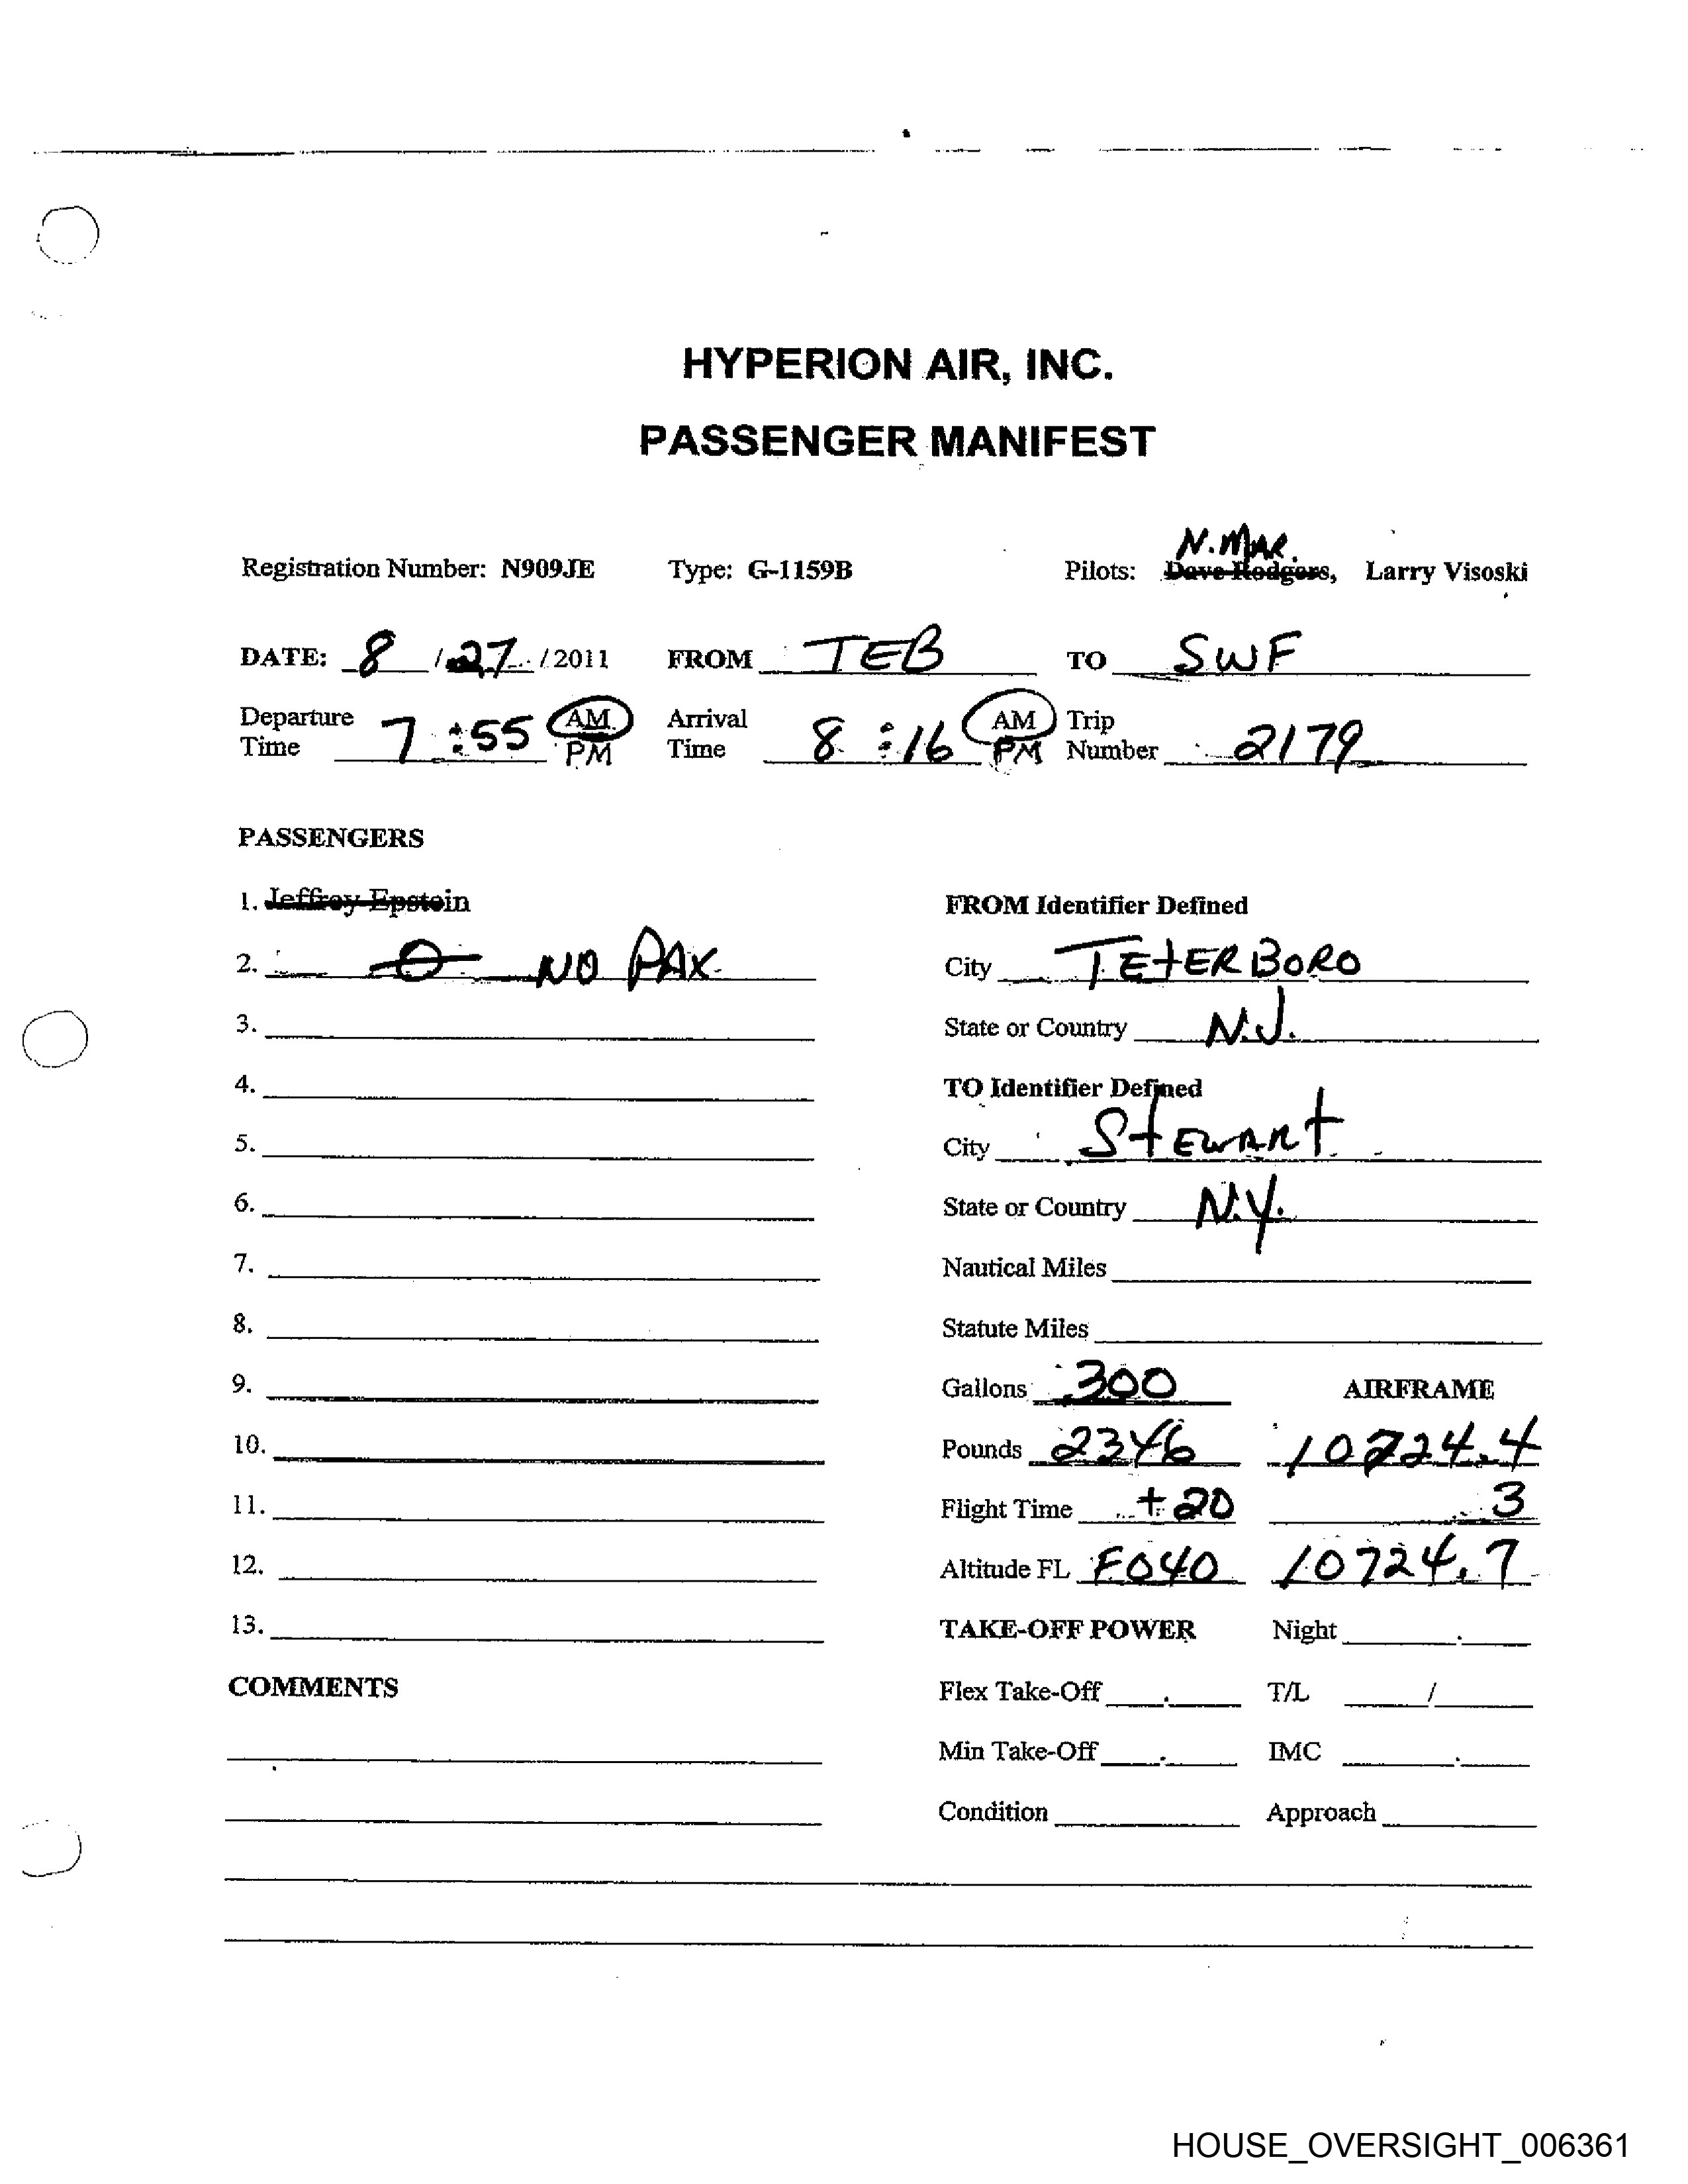 HYPERION AIR, INC.
PASSENGER MANIFEST
N. MAR.
Registration Number: N909JE Type: G-1159B Pilots: Dave Rodgers, Larry Visoski
DATE: 8 / 27 / 2011 FROM TEB TO SWF
Departure Time 7 : 55 AM PM Arrival Time 8 : 16 AM PM Trip Number 2179
PASSENGERS
1. Jeffrey Epstein
FROM Identifier Defined
2. 0 NO PAX
City TETERBORO
3.
State or Country N.J.
4.
TO Identifier Defined
5.
City Stewart
6.
State or Country N.Y.
7.
Nautical Miles
8.
Statute Miles
9.
Gallons 300 AIRFRAME
10.
Pounds 2346 10724.4
11.
Flight Time + 20 3
12.
Altitude FL F040 10724.7
13.
TAKE-OFF POWER Night .
COMMENTS
Flex Take-Off . T/L /
Min Take-Off . IMC .
Condition Approach
HOUSE_OVERSIGHT_006361